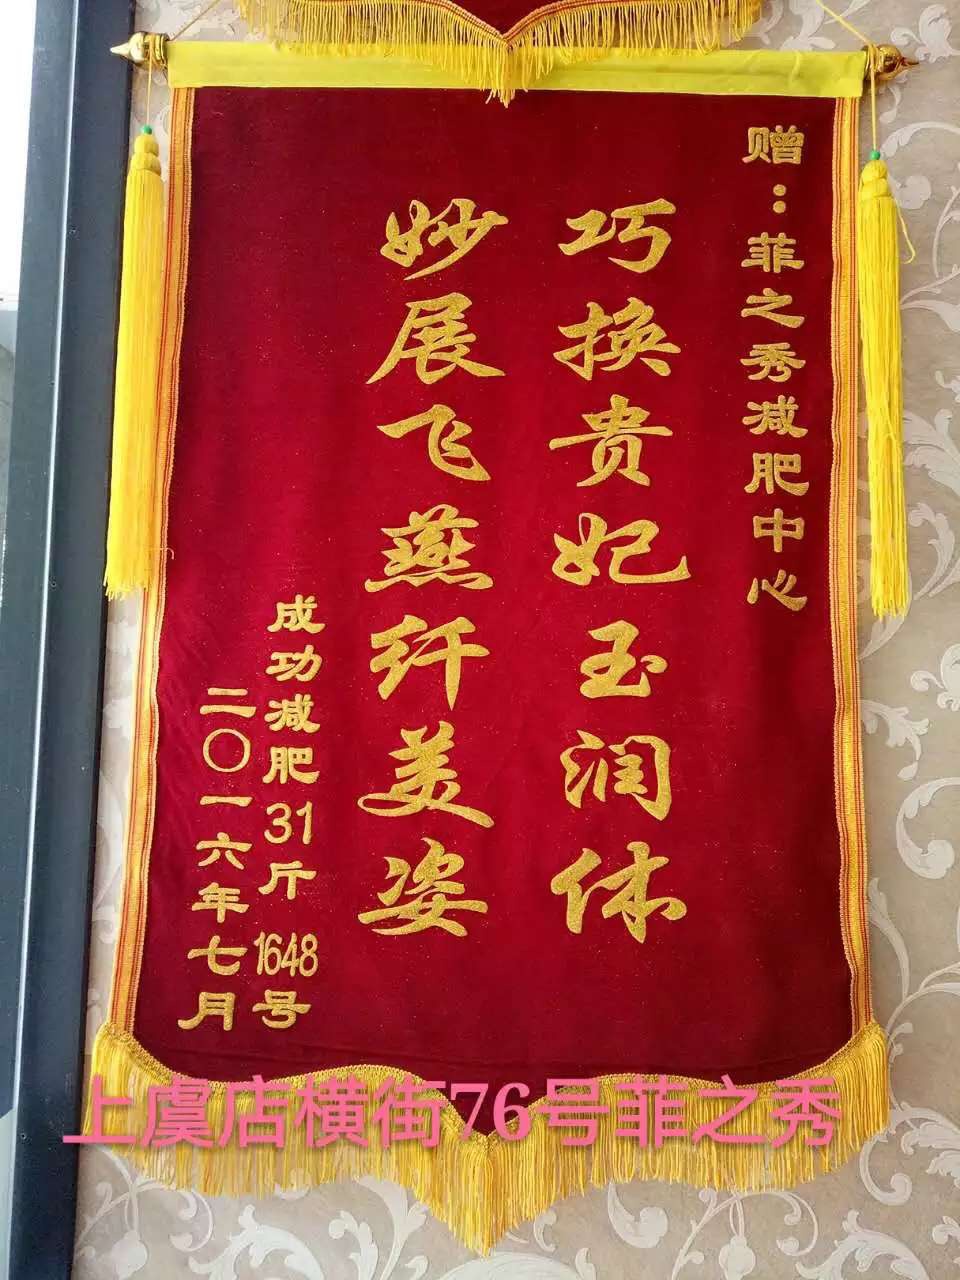 赠：菲之秀减肥中心
巧换贵妃玉润体
妙展飞燕纤美姿
成功减肥31斤 1648号
二〇一六年七月
上虞店横街76号菲之秀